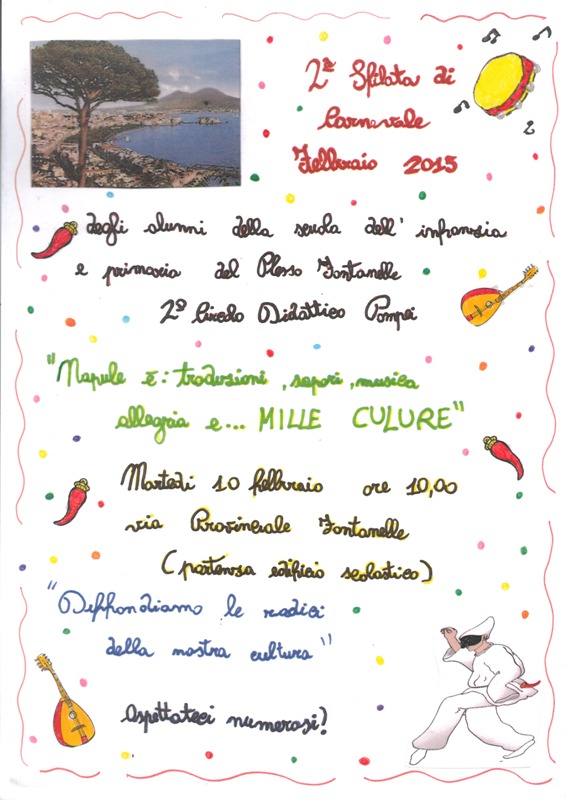 2ª Sfilata di
Carnevale
Febbraio 2015
degli alunni della scuola dell' infanzia
e primaria del Plesso Fontanelle
2º Circolo Didattico Pompei
"Napule è: tradizioni, sapori, musica
allegria e... MILLE CULURE"
Martedì 10 febbraio ore 10,00
via Provinciale Fontanelle
(partenza edificio scolastico)
"Diffondiamo le radici
della nostra cultura"
Aspettateci numerosi!